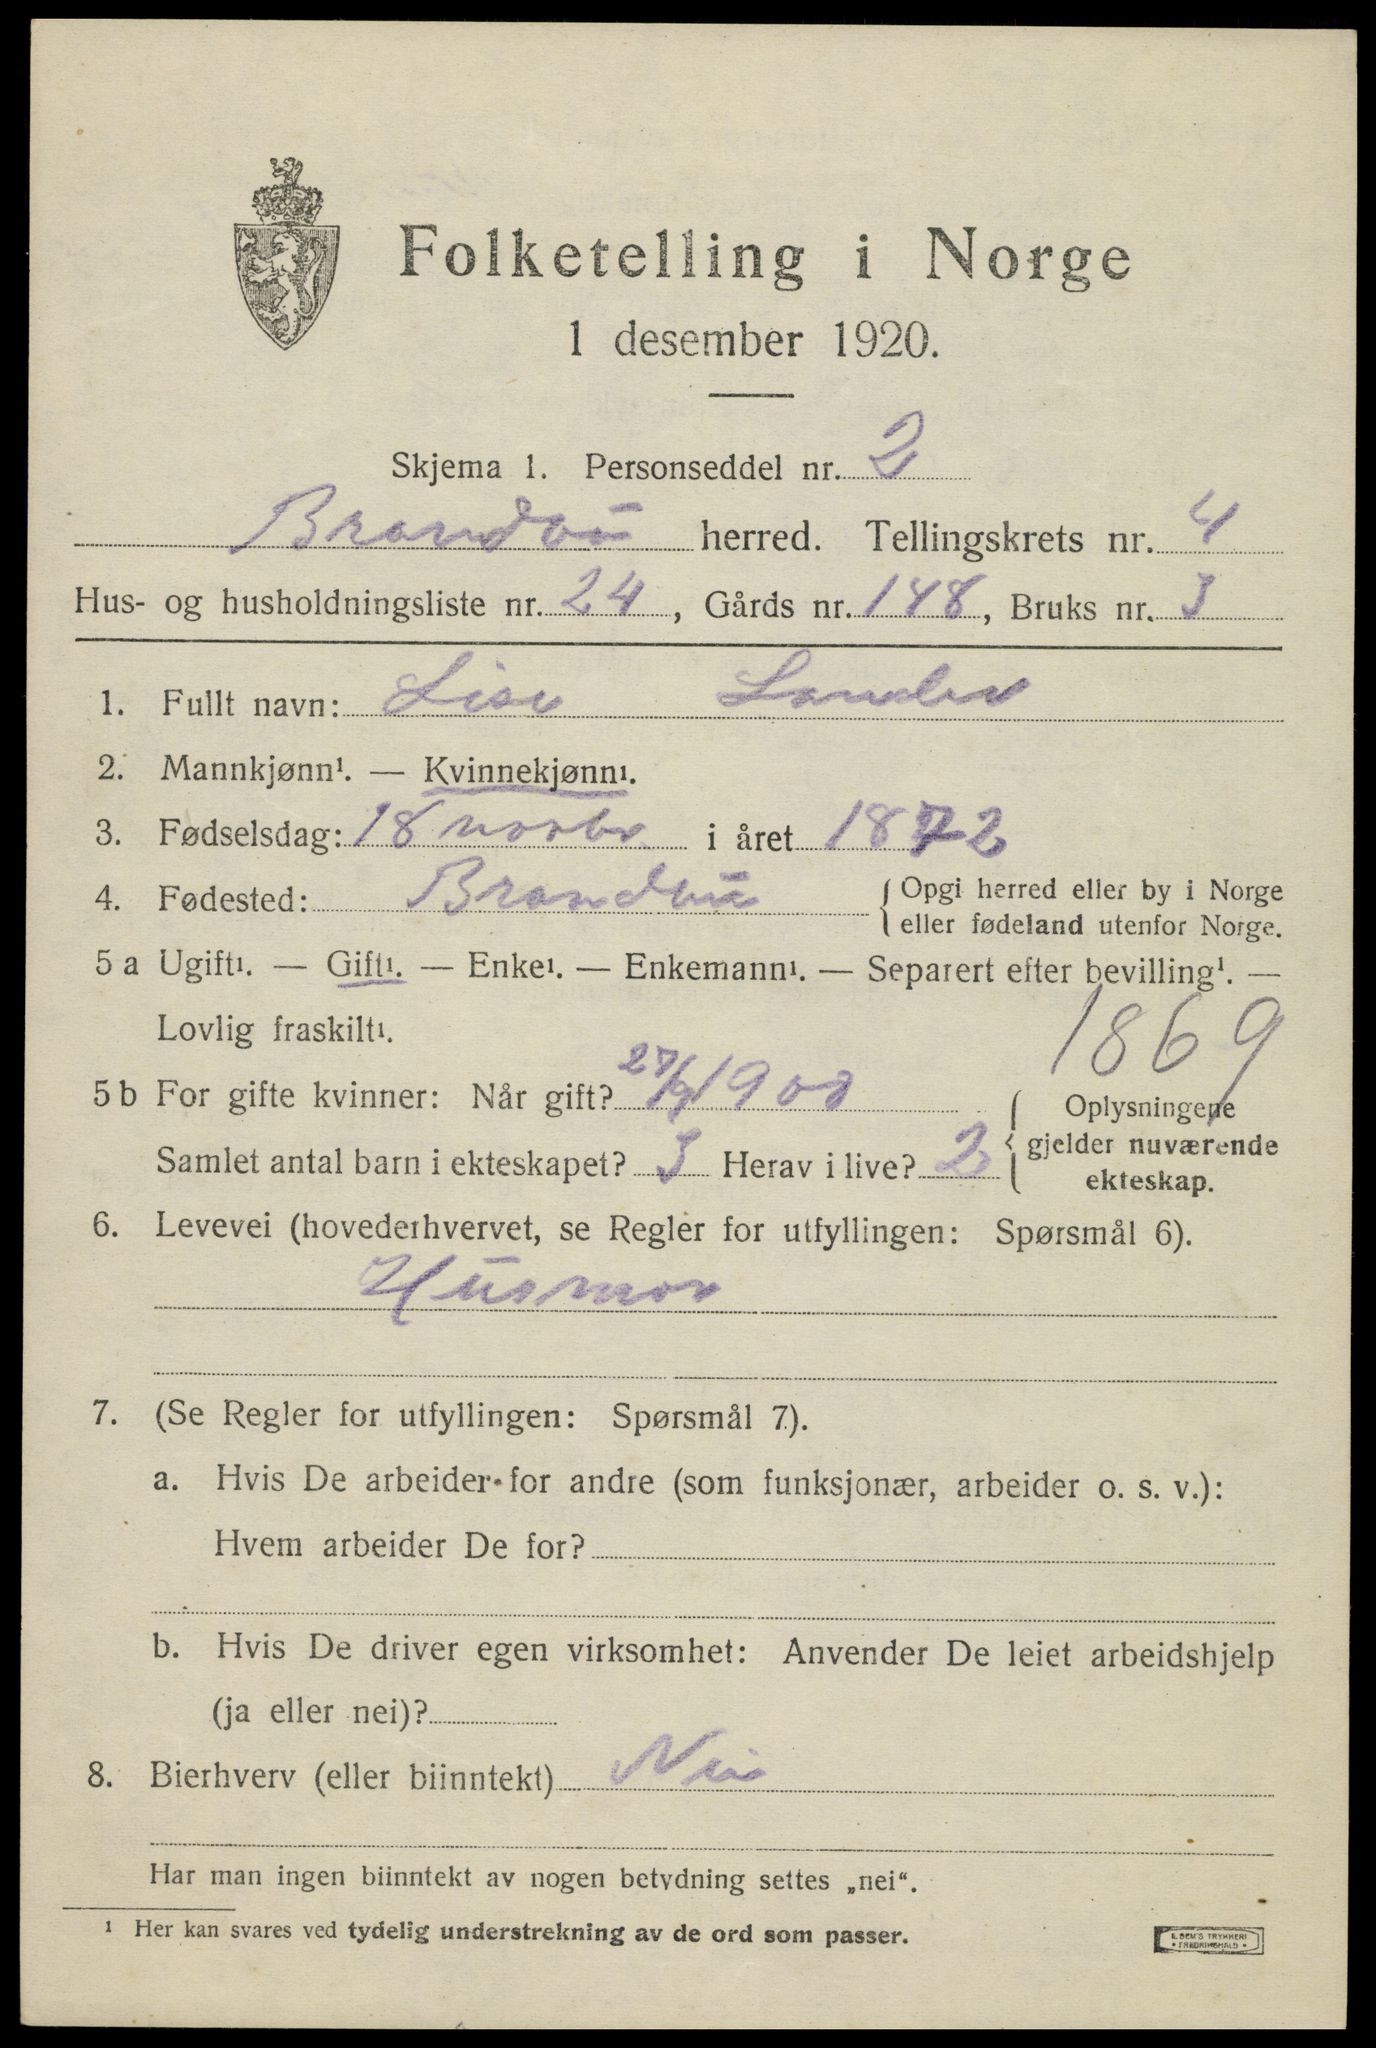 Folketelling i Norge
1 desember 1920.
Skjema 1. Personseddel nr. 2
Brandbu herred. Tellingskrets nr. 4
Hus- og husholdningsliste nr. 24, Gårds nr. 148, Bruks nr. 3
1. Fullt navn: Lise
2. Mannkjønn¹. — Kvinnekjønn¹.
3. Fødselsdag: 18 novbr. i året 1872
4. Fødested: Brandbu { Opgi herred eller by i Norge
eller fødeland utenfor Norge.
5 a Ugift¹. — Gift¹. — Enke¹. — Enkemann¹. — Separert efter bevilling¹. —
Lovlig fraskilt¹.
1869
5 b For gifte kvinner: Når gift? 1900
Samlet antal barn i ekteskapet? 3 Herav i live? 2
{ Oplysningene
gjelder nuværende
ekteskap.
6. Levevei (hovederhvervet, se Regler for utfyllingen: Spørsmål 6).
Husmor
7. (Se Regler for utfyllingen: Spørsmål 7).
a. Hvis De arbeider for andre (som funksjonær, arbeider o. s. v.):
Hvem arbeider De for?
b. Hvis De driver egen virksomhet: Anvender De leiet arbeidshjelp
(ja eller nei)?
8. Bierhverv (eller biinntekt) Nei
Har man ingen biinntekt av nogen betydning settes „nei“.
¹ Her kan svares ved tydelig understrekning av de ord som passer.
E. SEM'S TRYKKERI
• FREDRIKSHALD •